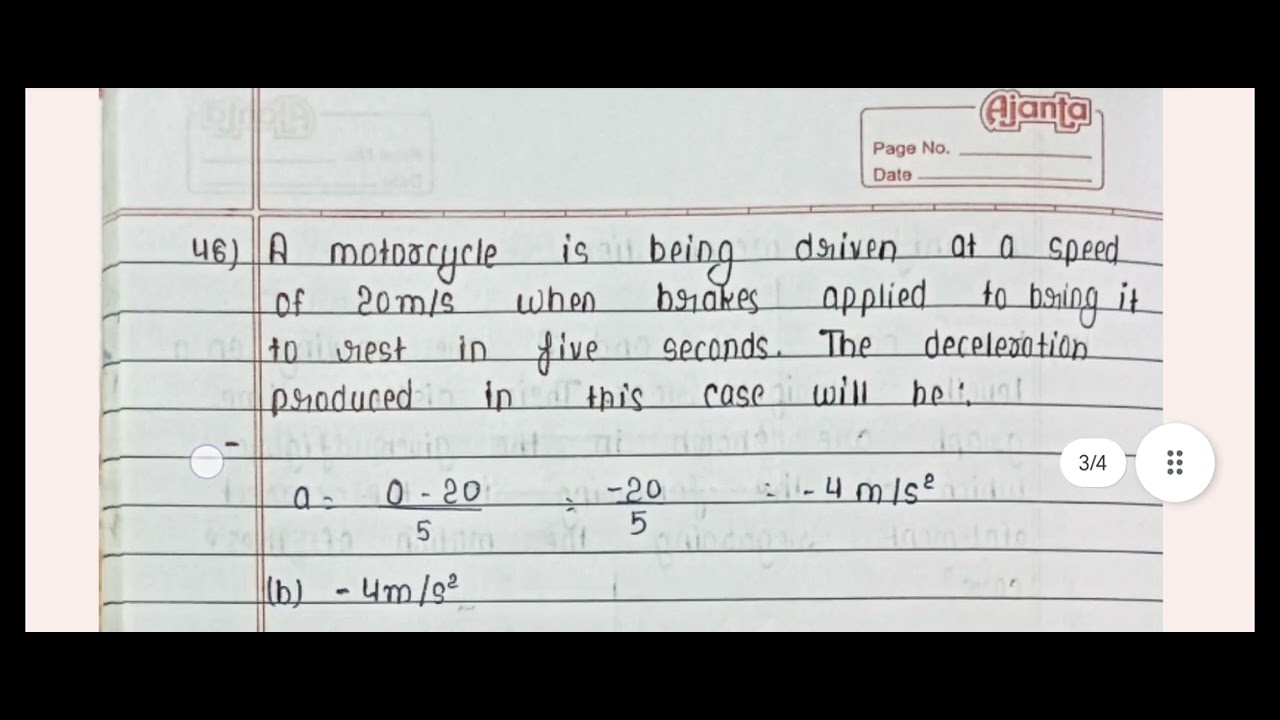 Ajanta
Page No.
Date
46) A motorcycle is being driven at a speed
of 20m/s when brakes applied to bring it
to rest in five seconds. The deceleration
produced in this case will be:
-
a = 0 - 20 / 5 = -20 / 5 = - 4 m/s²
3/4
(b) - 4m/s²